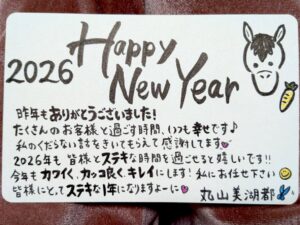 2026 Happy
New Year
昨年もありがとうございました!
たくさんのお客様と過ごす時間、いつも幸せです♪
私のくだらない話をきいてもらえて感謝してます
2026年も皆様とステキな時間を過ごせると嬉しいです!!
今年もカワイく、カッコ良く、キレイにします!私にお任せ下さい
皆様にとってステキな1年になりますよーに
丸山美湖都